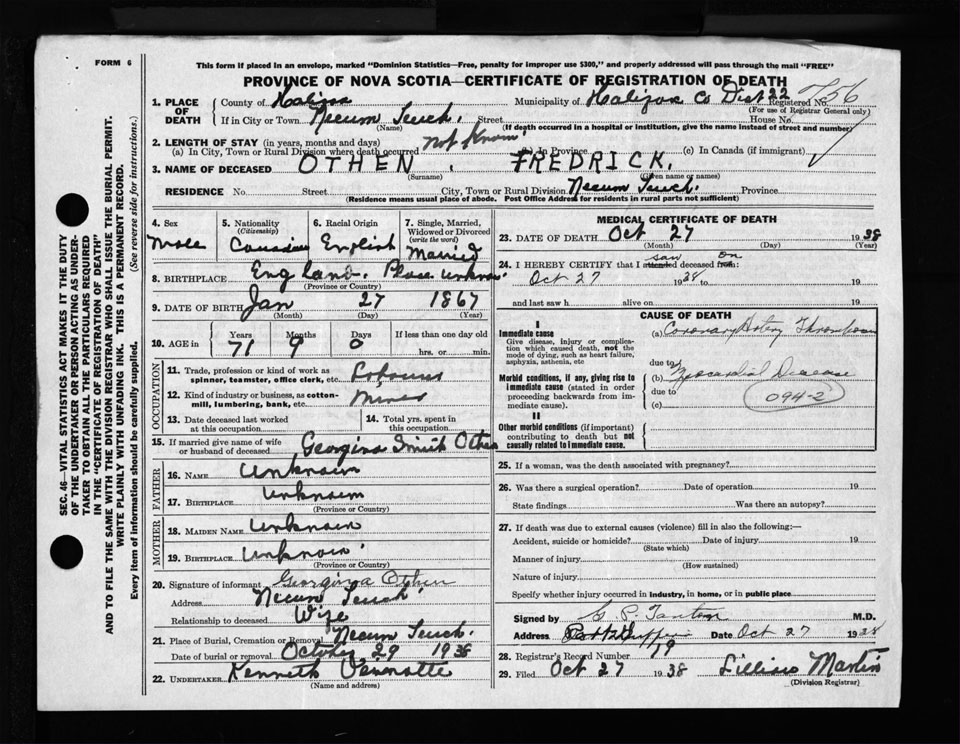 FORM 6
This form if placed in an envelope, marked "Dominion Statistics—Free, penalty for improper use $300," and properly addressed will pass through the mail "FREE"
PROVINCE OF NOVA SCOTIA—CERTIFICATE OF REGISTRATION OF DEATH
1. PLACE OF DEATH County of Halifax Municipality of Halifax Co Dist 22 Registered No. 756
(For use of Registrar General only)
If in City or Town Necum Teuch. Street House No.
(Name) (If death occurred in a hospital or institution, give the name instead of street and number)
2. LENGTH OF STAY (in years, months and days) not Know
(a) In City, Town or Rural Division where death occurred (b) In Province (c) In Canada (if immigrant)
3. NAME OF DECEASED OTHEN. FREDRICK.
(Surname) (Given name or names)
RESIDENCE No. Street City, Town or Rural Division Necum Teuch. Province
(Residence means usual place of abode. Post Office Address for residents in rural parts not sufficient)
4. Sex 5. Nationality (Citizenship) 6. Racial Origin 7. Single, Married, Widowed or Divorced (write the word)
Male Canadian English Married
8. BIRTHPLACE England. Place unknown
(Province or Country)
9. DATE OF BIRTH Jan 27 1867
(Month) (Day) (Year)
10. AGE in Years Months Days If less than one day old
71 9 0 hrs. or min.
OCCUPATION
11. Trade, profession or kind of work as spinner, teamster, office clerk, etc. Labourer
12. Kind of industry or business, as cotton-mill, lumbering, bank, etc. Miner
13. Date deceased last worked at this occupation 14. Total yrs. spent in this occupation
15. If married give name of wife or husband of deceased Georgina Smith Othen
FATHER
16. NAME Unknown
17. BIRTHPLACE Unknown
(Province or Country)
MOTHER
18. MAIDEN NAME Unknown
19. BIRTHPLACE Unknown
(Province or Country)
20. Signature of informant Georgina Othen
Address Necum Teuch
Relationship to deceased Wife
21. Place of Burial, Cremation or Removal Necum Teuch.
Date of burial or removal October 29 1938
22. UNDERTAKER Kenneth
(Name and address)
MEDICAL CERTIFICATE OF DEATH
23. DATE OF DEATH Oct 27 1938
(Month) (Day) (Year)
24. I HEREBY CERTIFY that I attended saw deceased from: on
Oct 27 1938 to 19
and last saw h alive on 19
CAUSE OF DEATH
I
Immediate cause (a) Coronary Artery Thrombosis
Give disease, injury or complication which caused death, not the mode of dying, such as heart failure, asphyxia, asthenia, etc
due to
Morbid conditions, if any, giving rise to immediate cause (stated in order proceeding backwards from immediate cause). (b) Myocardial Disease
due to
(c) 094-2
II
Other morbid conditions (if important) contributing to death but not causally related to immediate cause.
25. If a woman, was the death associated with pregnancy?
26. Was there a surgical operation? Date of operation 19
State findings Was there an autopsy?
27. If death was due to external causes (violence) fill in also the following:—
Accident, suicide or homicide? Date of injury 19
(State which)
Manner of injury
(How sustained)
Nature of injury
Specify whether injury occurred in industry, in home, or in public place
Signed by M.D.
Address Port Dufferin Date Oct 27 1938
28. Registrar's Record Number 79
29. Filed Oct 27 1938 Lillias Martin
(Division Registrar)
SEC. 46—VITAL STATISTICS ACT MAKES IT THE DUTY
OF THE UNDERTAKER OR PERSON ACTING AS UNDER-
TAKER TO OBTAIN ALL THE PARTICULARS REQUIRED
IN THE "CERTIFICATE OF REGISTRATION OF DEATH"
AND TO FILE THE SAME WITH THE DIVISION REGISTRAR WHO SHALL ISSUE THE BURIAL PERMIT.
WRITE PLAINLY WITH UNFADING INK. THIS IS A PERMANENT RECORD.
Every item of information should be carefully supplied. (See reverse side for instructions.)